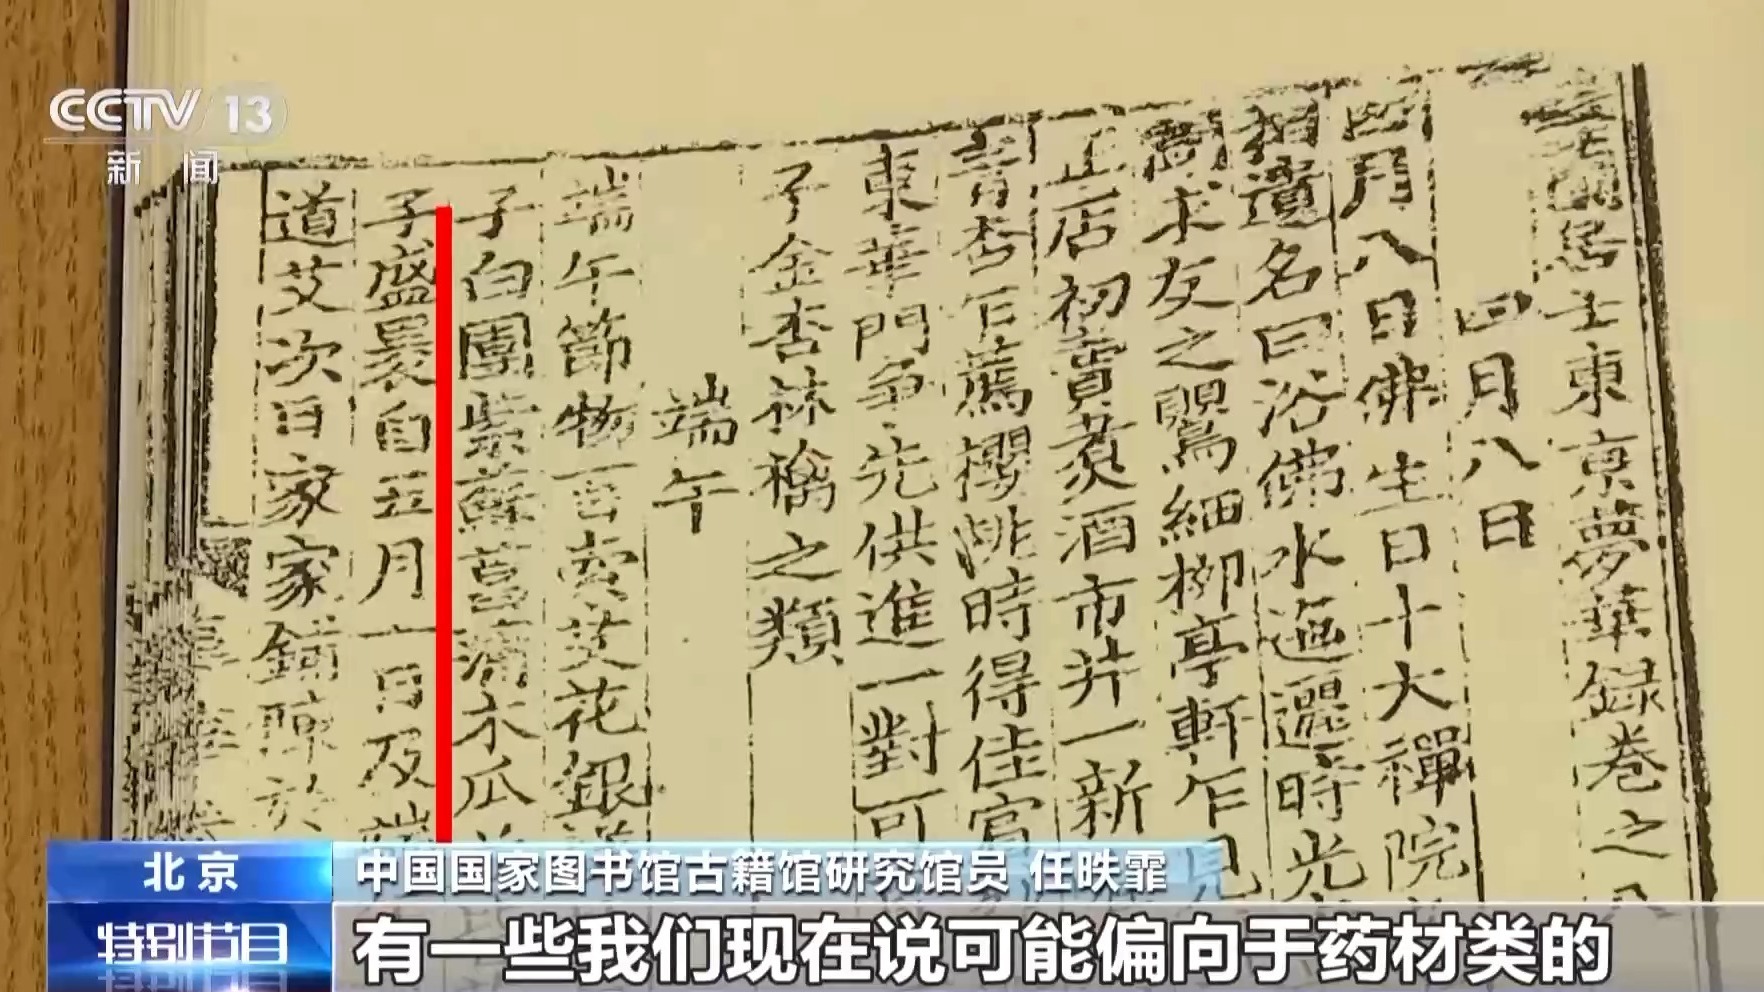 CCTV 13
新闻
蘭居士東京夢華録卷之
四月八日
四月八日佛生日十大禪院
相遺名曰浴佛水迤邐時光
聞求友之鸎細柳亭軒乍見
正店初賣煑酒市井一新
青杏乍薦櫻桃時得佳賓
東華門争先供進一對可
子金杏林檎之類
端午
端午節物百索艾花銀
子白團紫蘇菖蒲木瓜
子盛裹自五月一日及端
道艾次日家家鋪陳於
北京
中国国家图书馆古籍馆研究馆员 任昳霏
特别节目
有一些我们现在说可能偏向于药材类的